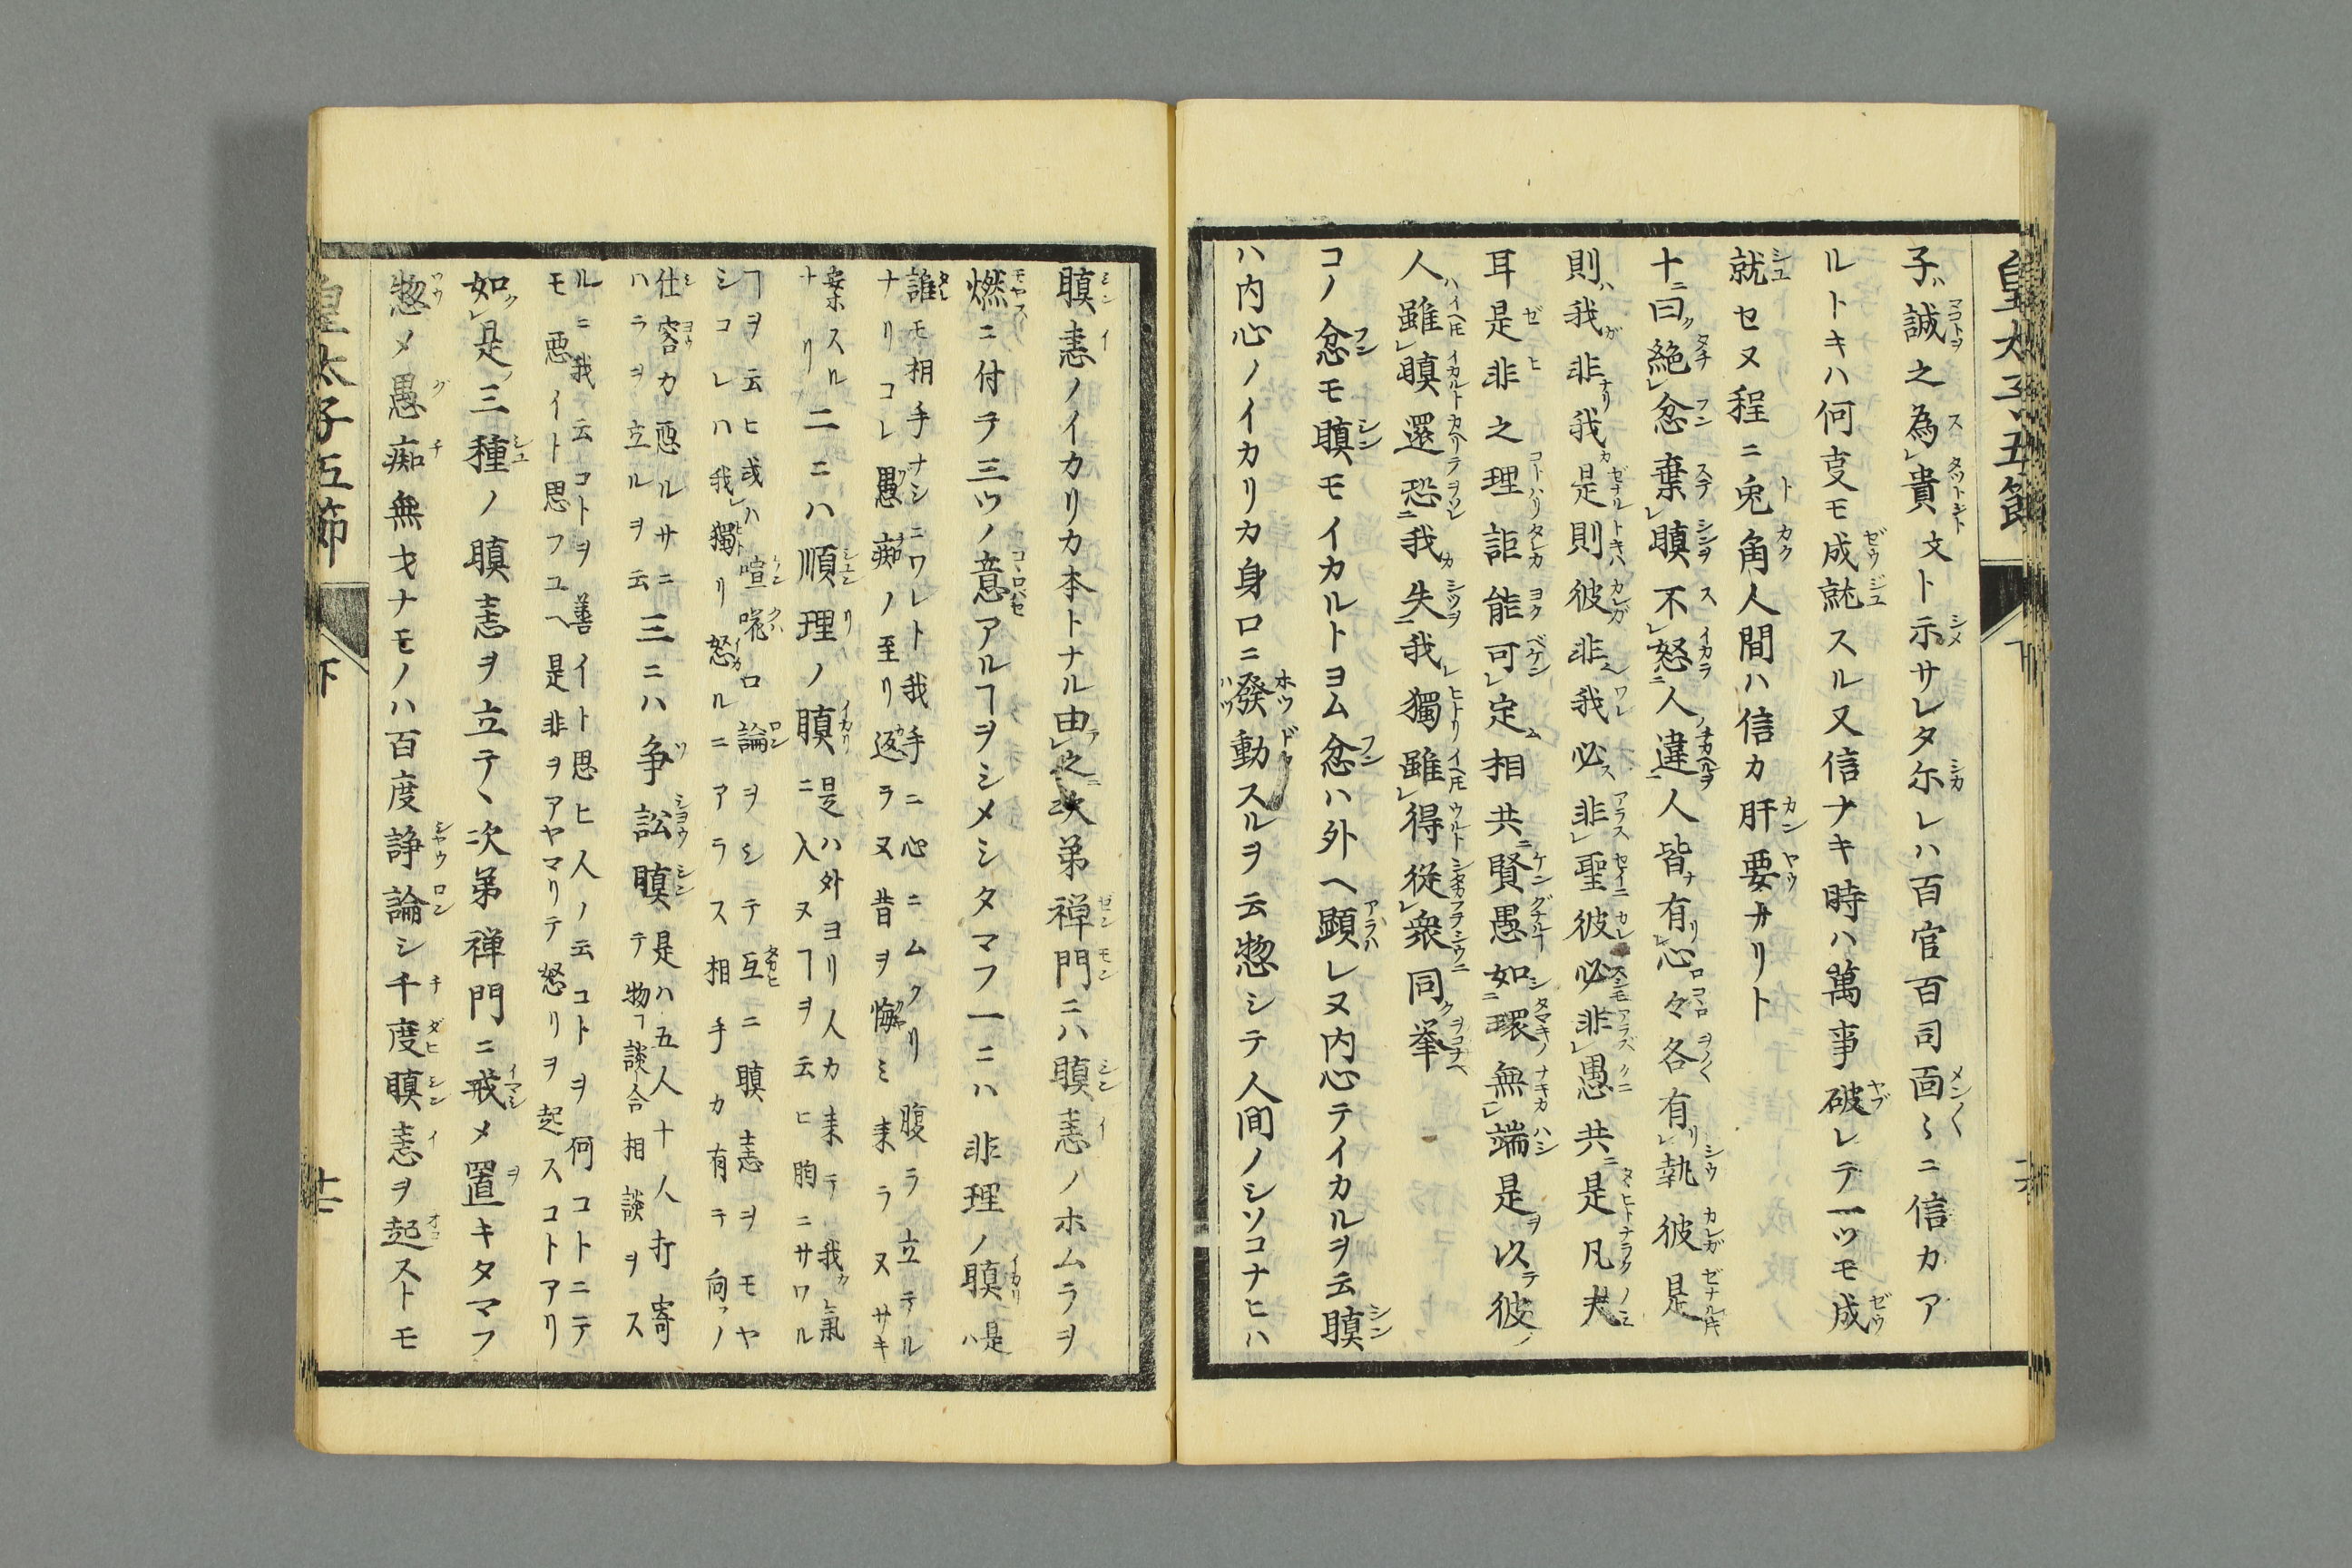 皇太子五節
下
子ハ誠之為貴文ト示サレタ尓レハ百官百司面〻ニ信カア
ルトキハ何叓モ成就スル又信ナキ時ハ萬事破レテ一ツモ成
就セヌ程ニ兎角人間ハ信カ肝要ナリト
十ニ曰ク絶忿棄瞋不怒人違人皆有心々各有執彼是
則我非我是則彼非我必非聖彼必非愚共是凡夫
耳是非之理詎能可定相共賢愚如環無端是以彼
人雖瞋還恐我失我獨雖得從衆同挙
コノ忿モ瞋モイカルトヨム忿ハ外ヘ顕レヌ内心テイカルヲ云瞋
ハ内心ノイカリカ身口ニ發動スルヲ云惣シテ人間ノシソコナヒハ
瞋恚ノイカリカ本トナル由之次弟禅門ニハ瞋恚ノホムラヲ
燃ニ付テ三ツノ意アルヿヲシメシタマフ一ニハ非理ノ瞋是ハ
誰モ相手ナシニワレト我手ニ心ニムクリ腹ラ立テル
ナリコレ愚痴ノ至リ返ラヌ昔ヲ悔ミ耒ラヌサキ
案スルナリ二ニハ順理ノ瞋是ハ外ヨリ人カ耒テ我カ氣ニ入ヌヿヲ云ヒ胸ニサワル
ヿヲ云ヒ或ハ喧𠵅口論ヲシテ互ニ瞋恚ヲモヤ
シコレハ我レ獨リ怒ルニアラス相手カ有テ向フノ
仕容カ悪ルサニハラヲ立ルヲ云三ニハ争訟瞋是ハ五人十人打寄テ物ヿ談合相談ヲス
ルニ我云コトヲ善イト思ヒ人ノ云コトヲ何コトニテ
モ悪イト思フユヘ是非ヲアヤマリテ怒リヲ起スコトアリ
如是三種ノ瞋恚ヲ立テヽ次弟禅門ニ戒メ置キタマフ
惣メ愚痴無才ナモノハ百度諍論シ千度瞋恚ヲ起ストモ
皇太子五節
下